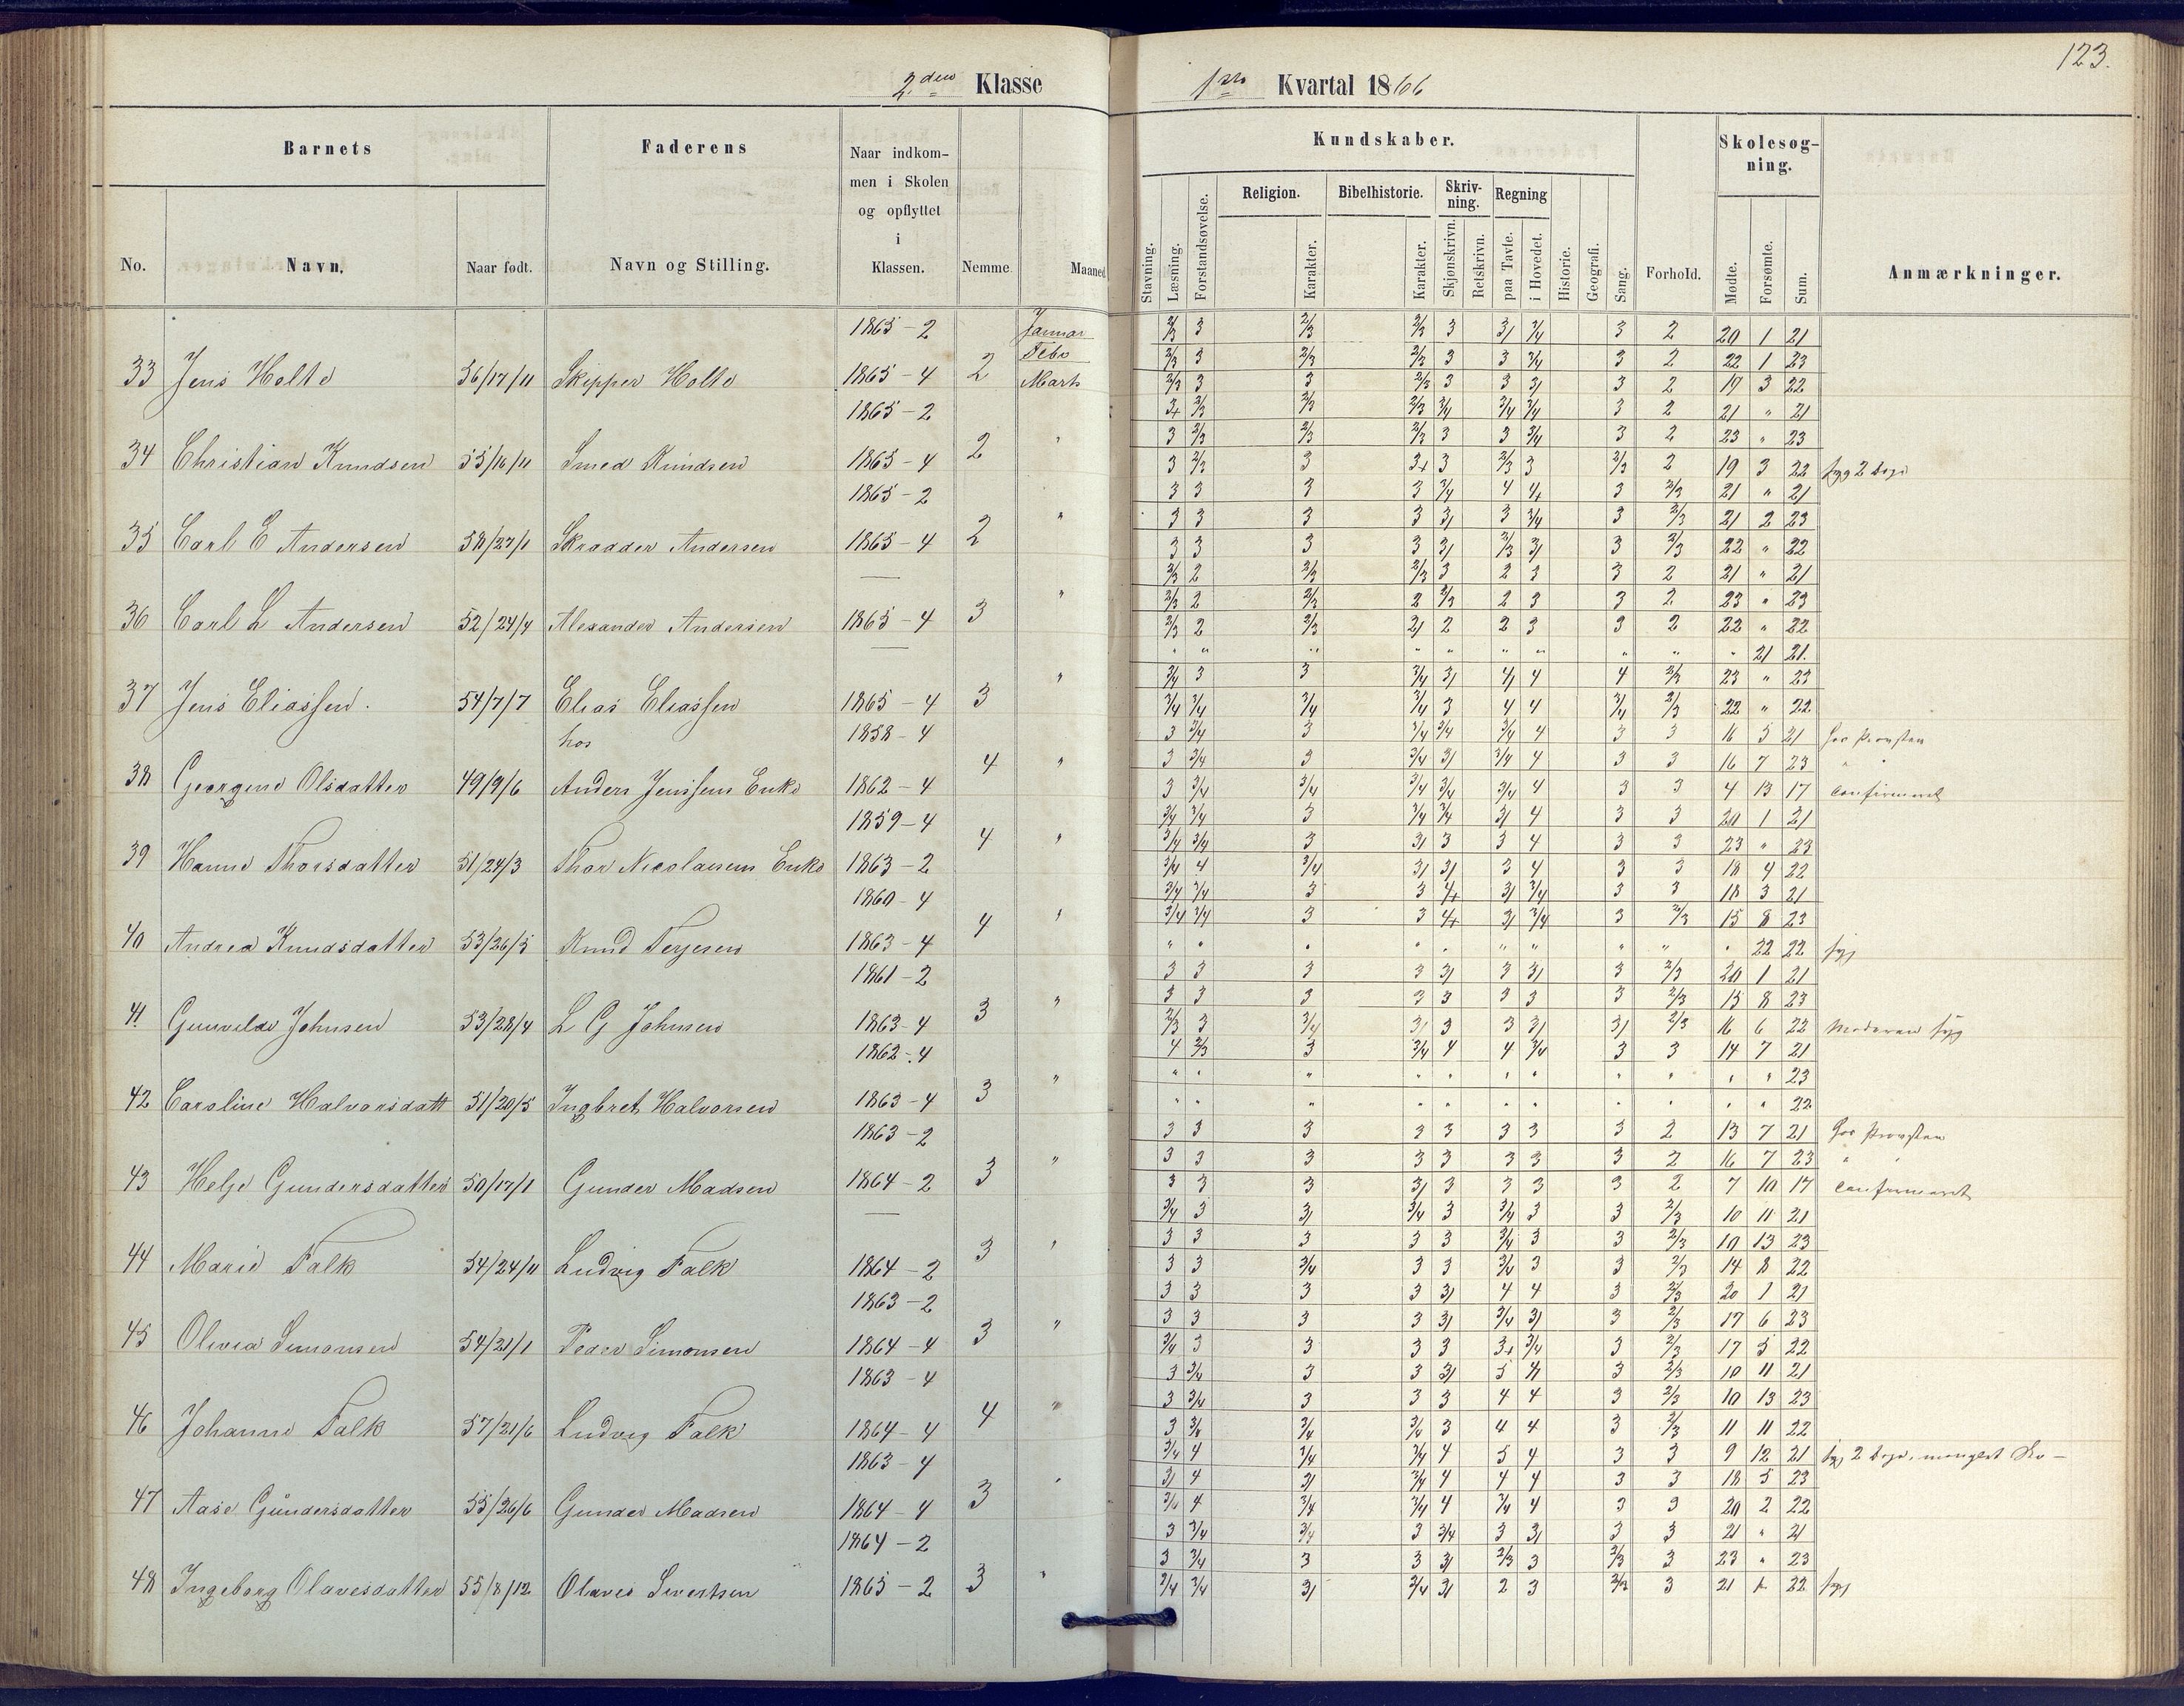 123.
2den Klasse
1ste Kvartal 1866
Barnets
Faderens
Naar indkom-
men i Skolen
og opflyttet
i
Klassen.
No.
Navn.
Naar født.
Navn og Stilling.
Nemme
Maaned
Kundskaber.
Skolesøg-
ning.
Stavning.
Læsning.
Forstandsøvelse.
Religion.
Karakter.
Bibelhistorie.
Karakter.
Skriv-
ning.
Skjønskrivn.
Retskrivn.
Regning
paa Tavle.
i Hovedet.
Historie.
Geografi.
Sang.
Forhold.
Mødte.
Forsømte.
Sum.
Anmærkninger.
1865 - 2 Januar 2/3 3 2/3 2/3 3 3/ 3/4 3 2 20 1 21
Febr 2/3 3 2/3 2/3 3 3 3/4 3 2 22 1 23
33 Jens Holte 56/17/11 Skipper Holte 1865 - 4 2 Marts 2/3 3 3 2/3 3 3 3/ 3 2 19 3 22
1865 - 2 3+ 2/3 2/3 2/3 3/4 3/4 3/4 3 2 21 " 21
3 2/3 2/3 2/3 3 3 3/4 3 2 23 " 23
34 Christian Knudsen 55/16/11 Smed Knudsen 1865 - 4 2 " 3 2/3 3 3+ 3 2/3 3 2/3 2 19 3 22 syg 2 dage
1865 - 2 3 3 3 3 3/4 4 4+ 3 2/3 21 " 21
3 3 3 3 3/ 3 3/4 3 2/3 21 2 23
35 Carl E Andersen 58/27/1 Skrædder Andersen 1865 - 4 2 " 3 3 3 3 3/ 2/3 3/ 3 2/3 22 " 22
2/3 2 2/3 2/3 3 2 3 3 2 21 " 21
2/3 2 2/3 2 2/3 2 3 3 2 23 " 23
36 Carl L Andersen 52/24/4 Alexander Andersen 1865 - 4 3 " 2/3 2 2/3 2/ 2 2 3 3 2 22 " 22
" " " " " " " " " " 21 21.
3/4 3 3 3/4 3/ 4/ 4 4 2/3 23 " 23
37 Jens Eliassen. 54/7/7 Elias Eliassen 1865 - 4 3 " 3/4 3/4 3/4 3/4 3 4 4 3/4 2/3 22 " 22
hos 1858 - 4 3 3/4 3 3/4 3/4 3/4 4 3 3 16 5 21 hos Provsten
3 3/4 3 3/4 3/ 3/4 4 3 3 16 7 23 "
38 Georgine Olsdatter 49/9/6 Anders Jenssens Enke 1862 - 4 4 " 3 3/4 3/4 3/4 3/4 3/4 4 3 3 4 13 17 confirmeret
1859 - 4 3/4 3/4 3 3/4 3/4 3/ 4 3 3 20 1 21
3/4 3/4 3 3/ 3 3 4 3 3 23 " 23
39 Hanne Thorsdatter 51/24/3 Thor Nicolaisens Enke 1863 - 2 4 " 3/4 4 3/4 3/ 3/ 3 4 3 3 18 4 22
1860 - 4 3/4 3/4 3 3 4+ 3/ 3/4 3 3 18 3 21
3/4 3/4 3 3 4+ 3/ 3/4 3 2/3 15 8 23
40 Andrea Knudsdatter 53/26/5 Knud Terjesen 1863 - 4 4 " " " " " " " " " " " 22 22 syg
1861 - 2 3 3 3 3 3/ 3 3/ 3 2/3 20 1 21
3 3 3 3 3 3 3 3 2/3 15 8 23
41 Gunvilde Johnsen 53/28/4 L G Johnsen 1863 - 4 3 " 2/3 3 3/4 3/ 3 3 3/ 3/ 2/3 16 6 22 Moderen syg
1862 - 4 4 2/3 3 3/4 4 4 3/4 3 3 14 7 21
" " " " " " " " " " " 23
42 Caroline Halvorsdatt 51/20/5 Ingbret Halvorsen 1863 - 4 3 " " " " " " " " " " " " 22
1863 - 2 3 3 3 3 3 3 3 3 2 13 7 21 hos Provsten
3 3 3 3 3 3 3 3 2 16 7 23 "
43 Helge Gundersdatter 50/17/1 Gunder Madsen 1864 - 2 3 " 3 3 3 3/ 3 3 3 3 2 7 10 17 confirmeret
3/4 3 3/ 3/4 3 3/4 3 3 2/3 10 11 21
3 3 3 3 3 3/4 3 3 2/3 10 13 23
44 Marie Falk 54/24/11 Ludvig Falk 1864 - 2 3 " 3 3 3/4 3 3 3/4 3 3 2/3 14 8 22
1863 - 2 3 3 3 3 3/ 4 4 3 2/3 20 1 21
3 3 3 3 3/ 3/4 3/ 3 2/3 17 6 23
45 Olivia Simonsen 54/21/1 Peder Simonsen 1864 - 4 3 " 3/4 3 3 3 3 3+ 3/4 3 2/3 17 5 22
1863 - 4 3 3/4 3 3 3/ 5 4/ 3 2/3 10 11 21
3 3/4 3 3 3 4 4 3 2/3 10 13 23
46 Johanne Falk 57/21/6 Ludvig Falk 1864 - 4 4 " 3 3/4 3/4 3/4 3 4 4 3 2/3 11 11 22
1863 - 4 3/4 4 3/4 3/4 4 5 4 3 3 9 12 21 syg 2 dage, manglet Sko -
3/ 4 3/ 3/4 4 4 4 3 3 18 5 23
47 Aase Gundersdatter 55/26/6 Gunder Madsen 1864 - 4 3 " 3/4 4 3/4 3/4 4 3/4 4 3 3 20 2 22
1864 - 2 3 3/4 3/4 3 3/4 3 3/ 3 3 21 " 21
3 3/4 3 3 3/ 2/3 3 2/3 3 23 " 23
48 Ingeborg Olavesdatter 55/8/12 Olaves Sivertsen 1865 - 2 3 " 3/4 3/4 3/ 3/4 3/ 2 3 2/3 3 21 1 22 syg